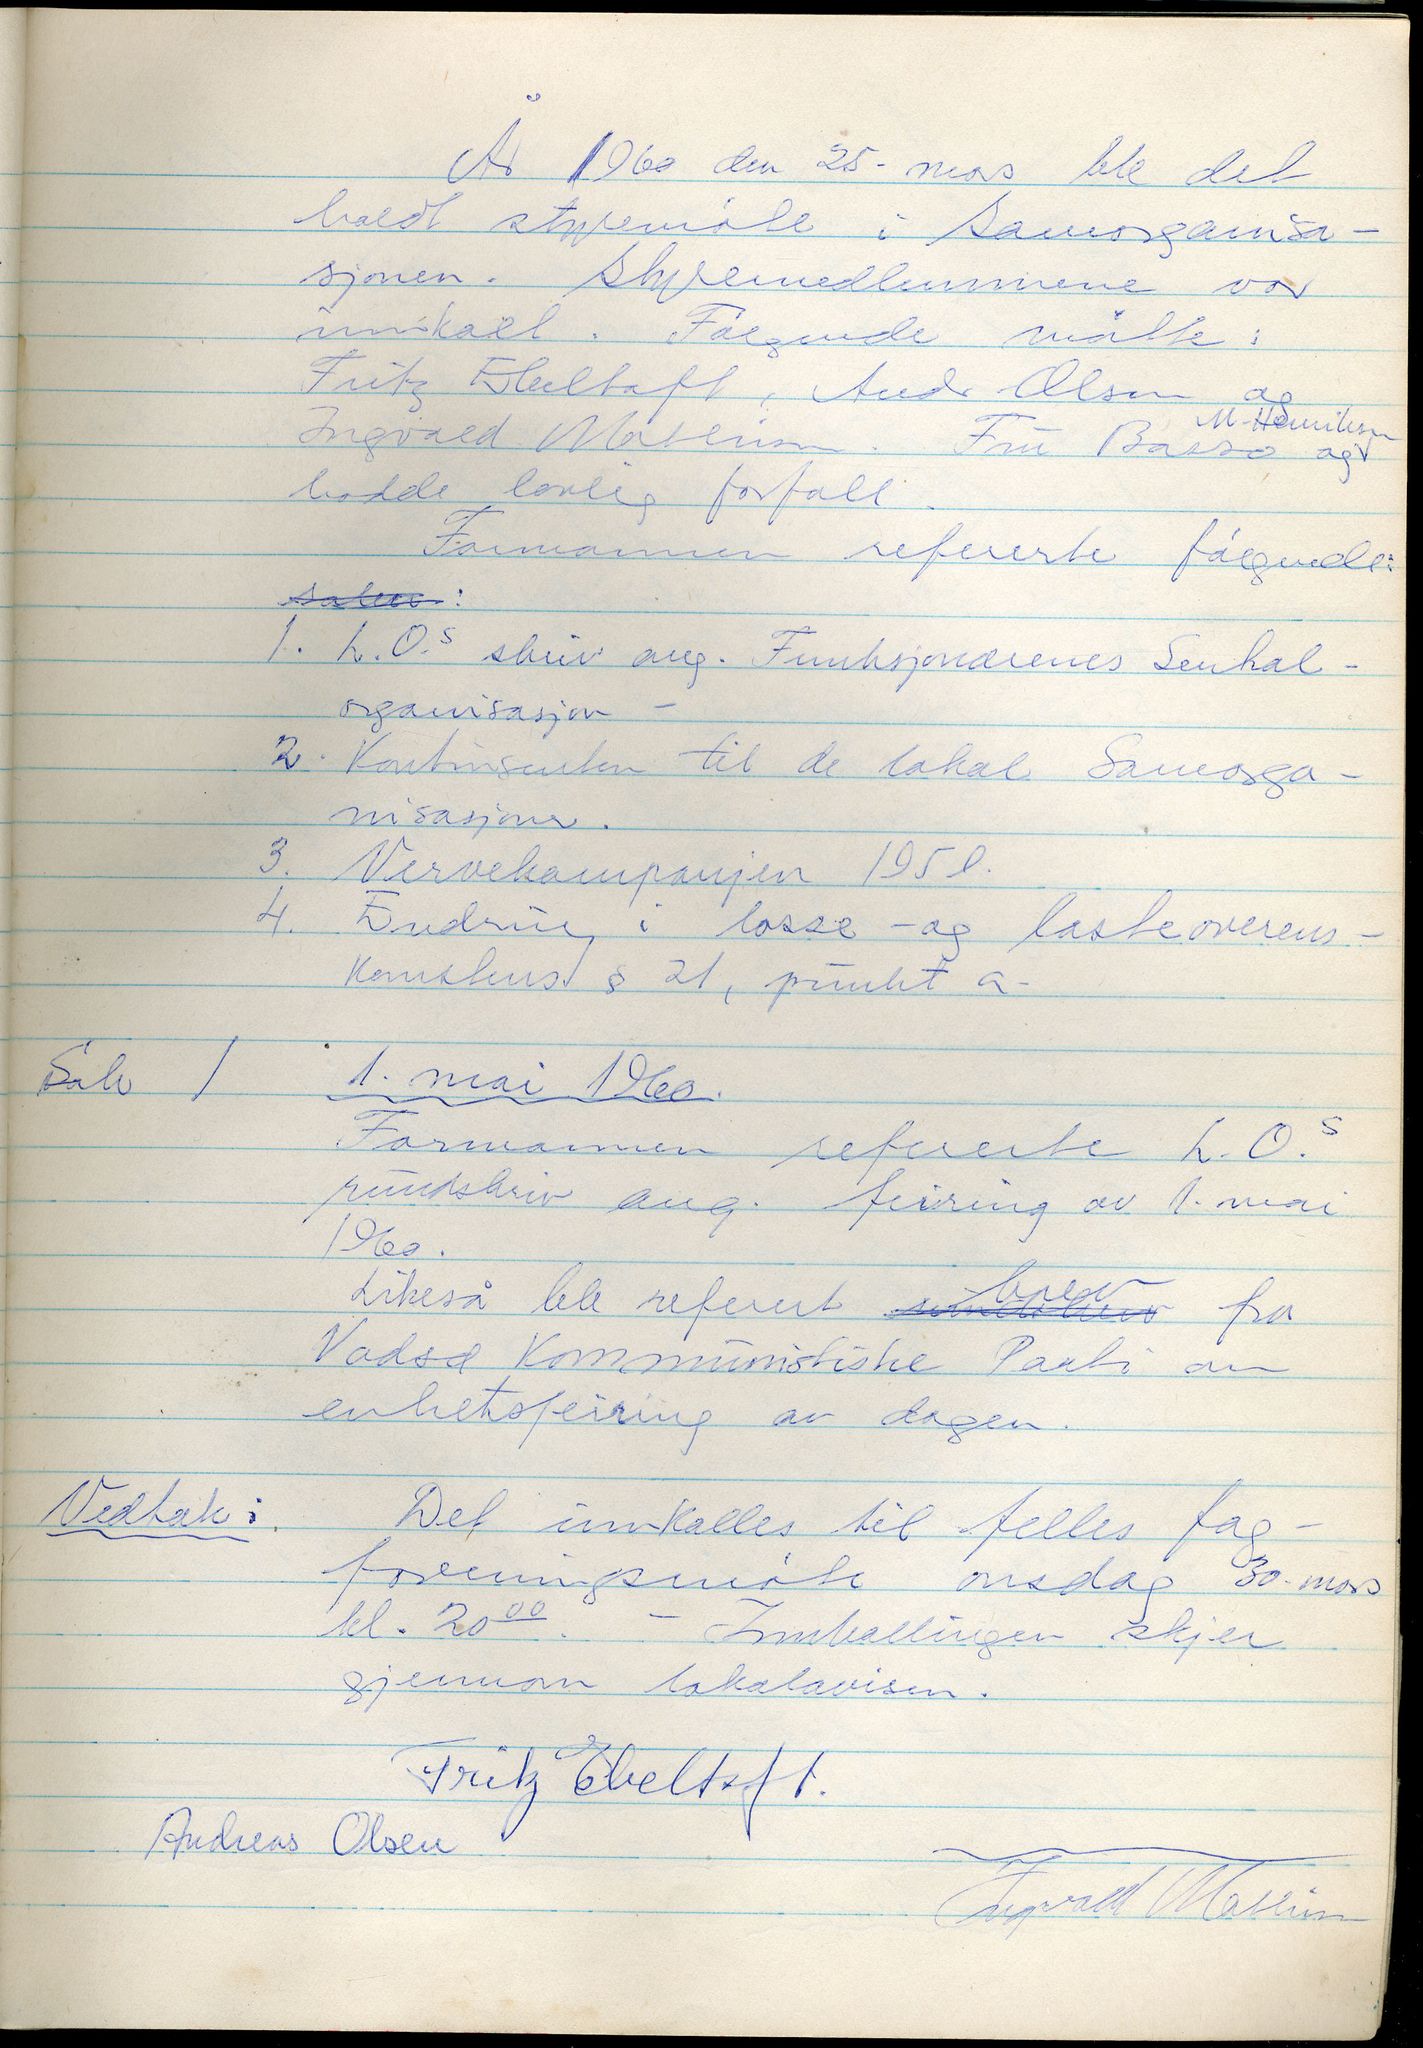 År 1960 den 25- mars ble det
holdt styremöte i Samorganisa-
sjonen. Styremedlemmene var
innkalt. Fölgende mötte:
Fritz Ebeltoft, Andr. Olsen og
Ingvald Mathisen. Fru Basso og M. Henriksen
hadde lovlig forfall.
Formannen refererte fölgende:
saker:
1. L.O.s skriv ang. Funksjonærenes Sentral-
organisasjon -
2. Kontingenten til de lokal Samorga-
nisasjoner.
3. Vervekampanjen 1959.
4. Endring i losse - og lasteoverens-
komstens § 21, punkt a-
Sak 1 1. mai 1960.
Formannen refererte L.O.s
rundskriv ang. feiring av 1. mai
1960.
Likeså ble referert rundskriv brev fra
Vadsø Kommunistiske Parti om
enhetsfeiring av dagen.
Vedtak: Det innkalles til felles fag-
foreningsmöte onsdag 30. mars
kl. 20 00. - Innkallingen skjer
gjennom lokalavisen.
Fritz Ebeltoft.
Andreas Olsen
Ingvald Mathisen